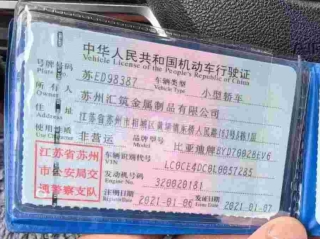 中华人民共和国机动车行驶证
Vehicle License of the People's Republic of China
号牌号码 苏ED98387 车辆类型 小型轿车
Vehicle Type
苏州汇筑金属制品有限公司
住 址 江苏省苏州市相城区黄埭镇东桥人民路
非营运 比亚迪牌BYD7002BEV6
江苏省苏州市公安局交通警察支队
车辆识别代号 LC0CE4DCBL0057285
VIN
发动机号码 320020181
Engine No.
注册日期 2021-01-06 发证日期 2021-01-07